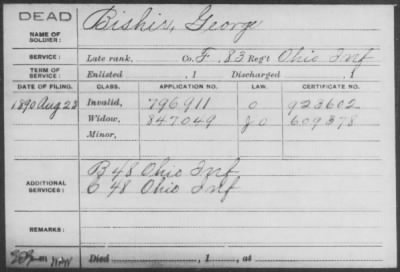 DEAD
NAME OF SOLDIER: Bishir, George
SERVICE: Late rank, Co. F, 83 Reg't Ohio Inf
TERM OF SERVICE: Enlisted , 1 Discharged , 1
DATE OF FILING. CLASS. APPLICATION NO. LAW. CERTIFICATE NO.
1890 Aug 23 Invalid, 796911 O 923602
Widow, 847049 609378
Minor,
ADDITIONAL SERVICES: B 48 Ohio Inf
C 48 Ohio Inf
REMARKS:
Died , 1 , at